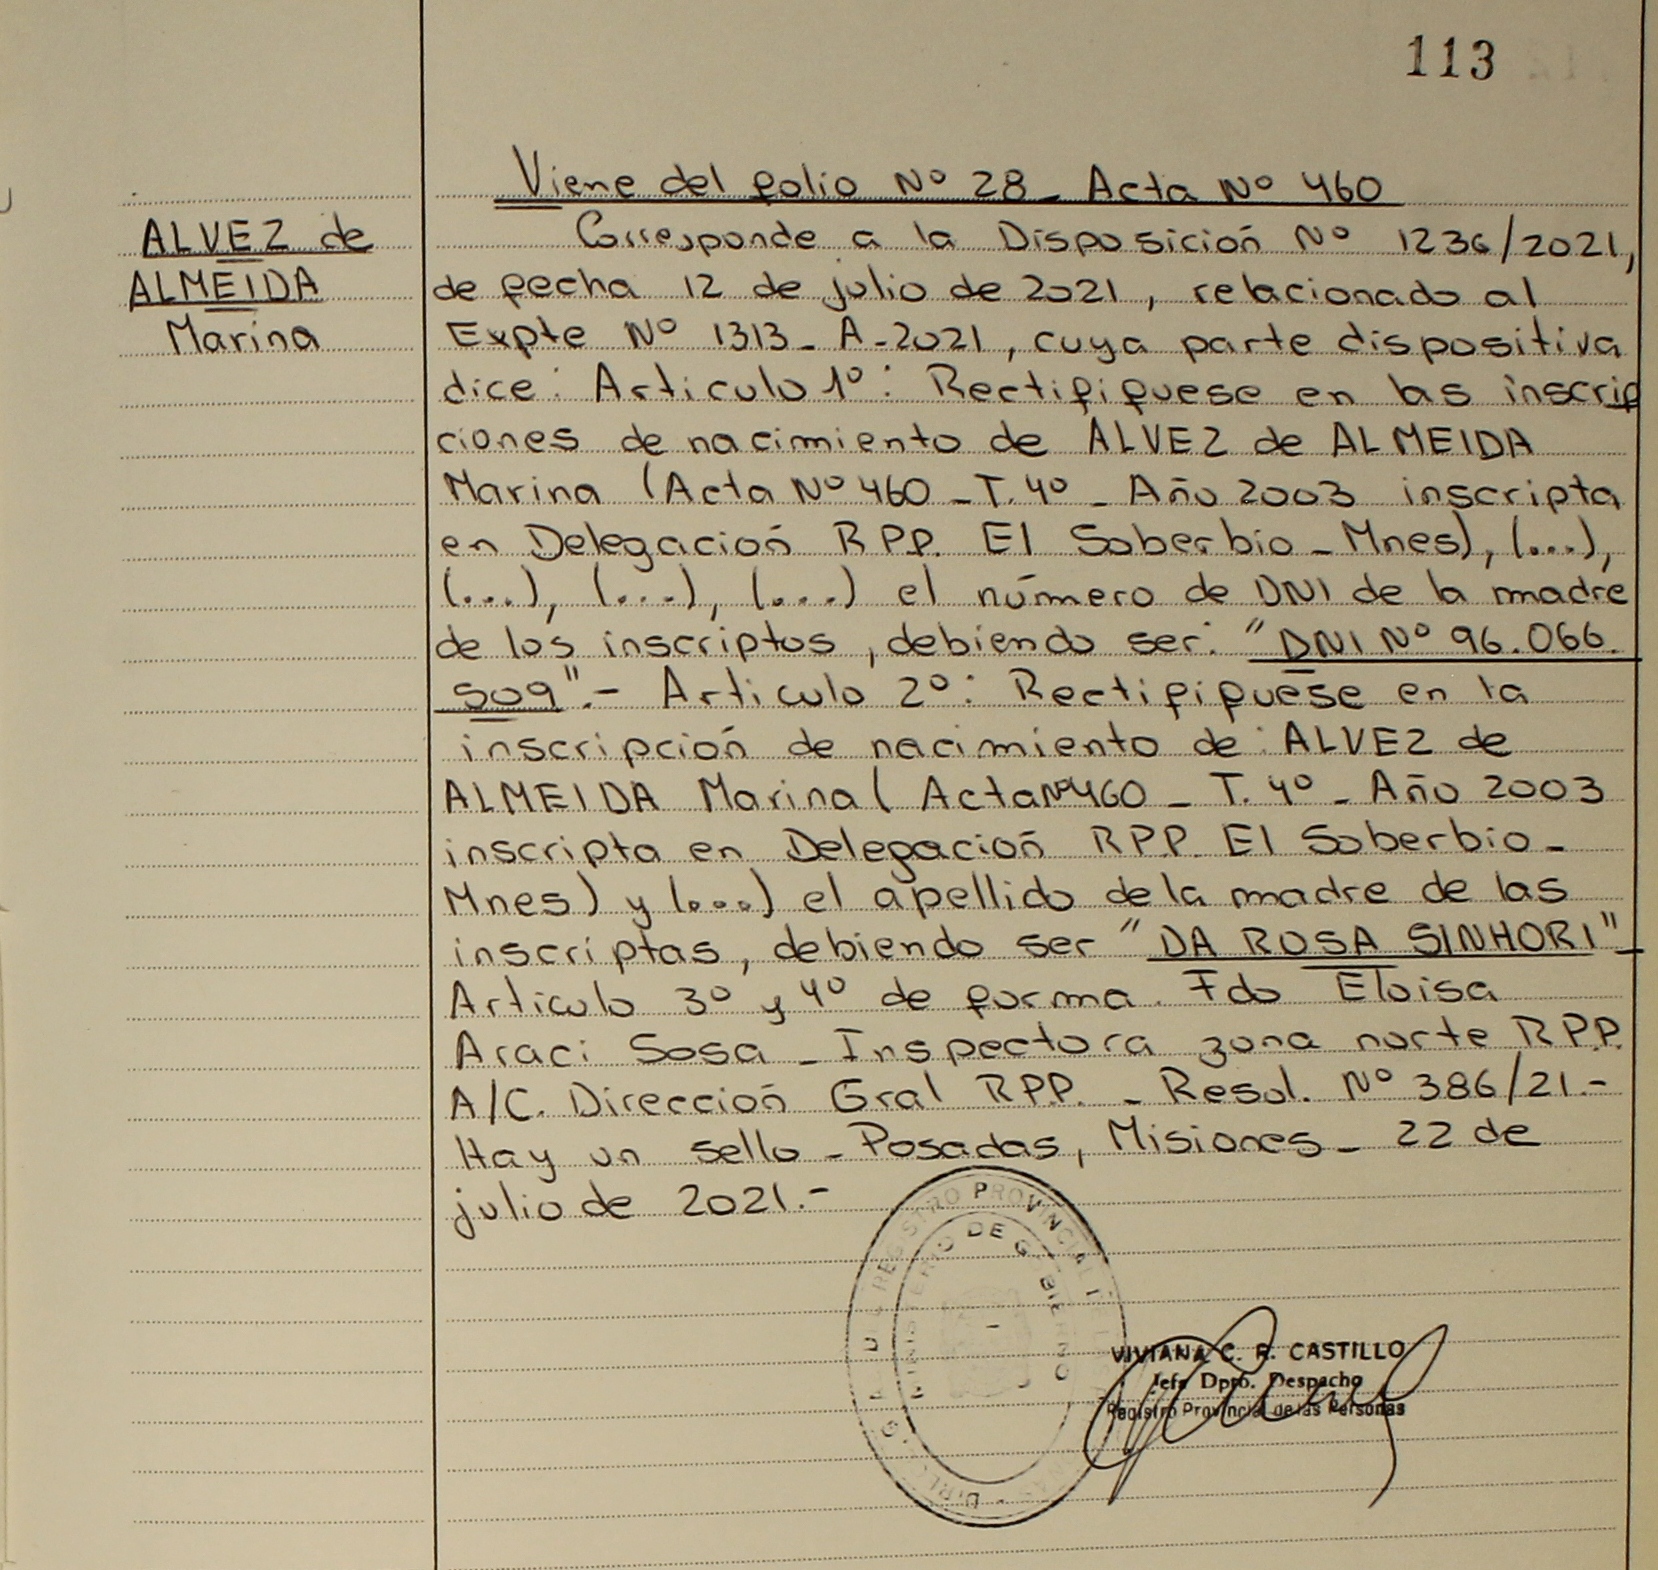 113
Viene del folio Nº 28 - Acta Nº 460
ALVEZ de
ALMEIDA
Marina
Corresponde a la Disposición Nº 1236/2021,
de fecha 12 de julio de 2021, relacionado al
Expte Nº 1313 - A - 2021, cuya parte dispositiva
dice: Articulo 1º: Rectifiquese en las inscrip
ciones de nacimiento de ALVEZ de ALMEIDA
Marina (Acta Nº 460 - T. 4º - Año 2003 inscripta
en Delegación RPP. El Soberbio - Mnes), (...),
(...), (...), (...) el número de DNI de la madre
de los inscriptos, debiendo ser: "DNI Nº 96.066.
509".- Articulo 2º: Rectifiquese en la
inscripción de nacimiento de: ALVEZ de
ALMEIDA Marina (Acta Nº 460 - T. 4º - Año 2003
inscripta en Delegación RPP. El Soberbio -
Mnes) y (...) el apellido de la madre de las
inscriptas, debiendo ser "DA ROSA SINHORI" -
Articulo 3º y 4º de forma. Fdo Eloisa
Araci Sosa - Inspectora zona norte RPP.
A/C. Dirección Gral RPP. - Resol. Nº 386/21.-
Hay un sello - Posadas, Misiones - 22 de
julio de 2021.-
REGISTRO PROVINCIAL
MINISTERIO DE GOBIERNO
VIVIANA C. R. CASTILLO
Jefe Dpto. Despacho
Registro Provincial de las Personas